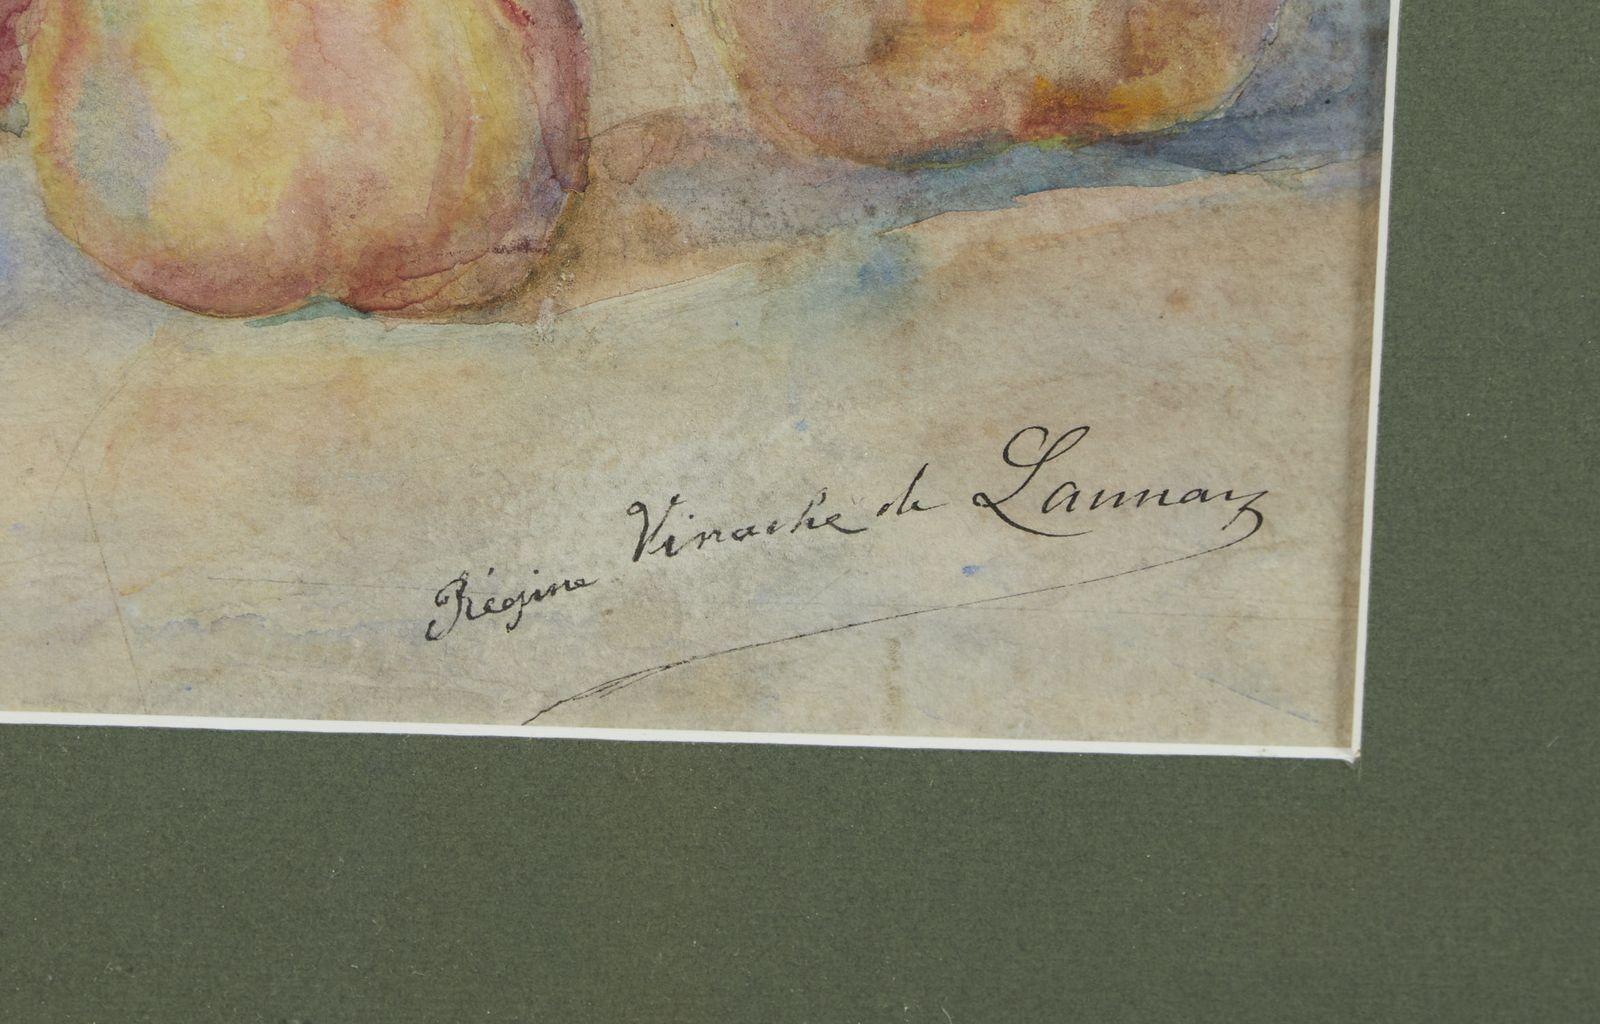 Régine Vinache de Launay